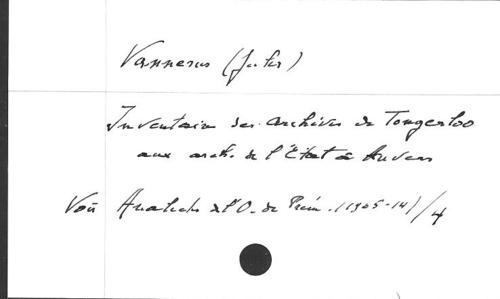 Vannerus (Jules)
Inventaire des archives de Tongerloo
aux arch. de l'État à Anvers
Voir Analectes de l'O. de Prém. (1905-14)/4